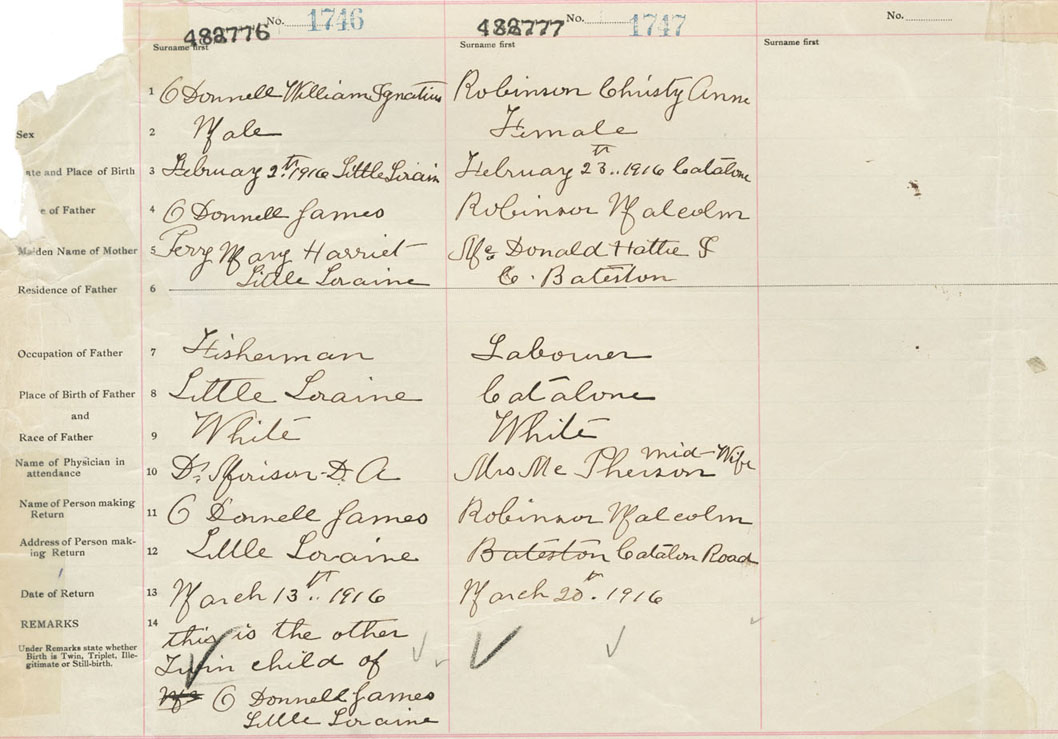 488776 No. 1746
Surname first
488777 No. 1747
Surname first
No.
Surname first
1 O Donnell William Ignatius Robinson Christy Anne
Sex 2 Male Female
ate and Place of Birth 3 February 2th 1916 Little Lorain February 23th 1916 Catalone
e of Father 4 O Donnell James Robinson Malcolm
Maiden Name of Mother 5 Perry Mary Harriet Mc Donald Hattie F
Residence of Father 6 Little Loraine C. Bateston
Occupation of Father 7 Fisherman Labourer
Place of Birth of Father 8 Little Loraine Catalone
and
Race of Father 9 White White
Name of Physician in attendance 10 Dr. Morison D. A Mrs Mc Pherson mid-Wife
Name of Person making Return 11 O Donnell James Robinson Malcolm
Address of Person making Return 12 Little Loraine Bateston Catalon Road
Date of Return 13 March 13th 1916 March 20th 1916
REMARKS 14
Under Remarks state whether
Birth is Twin, Triplet, Ille-
gitimate or Still-birth.
this is the other
Twin child of
O Donnell James
Little Loraine